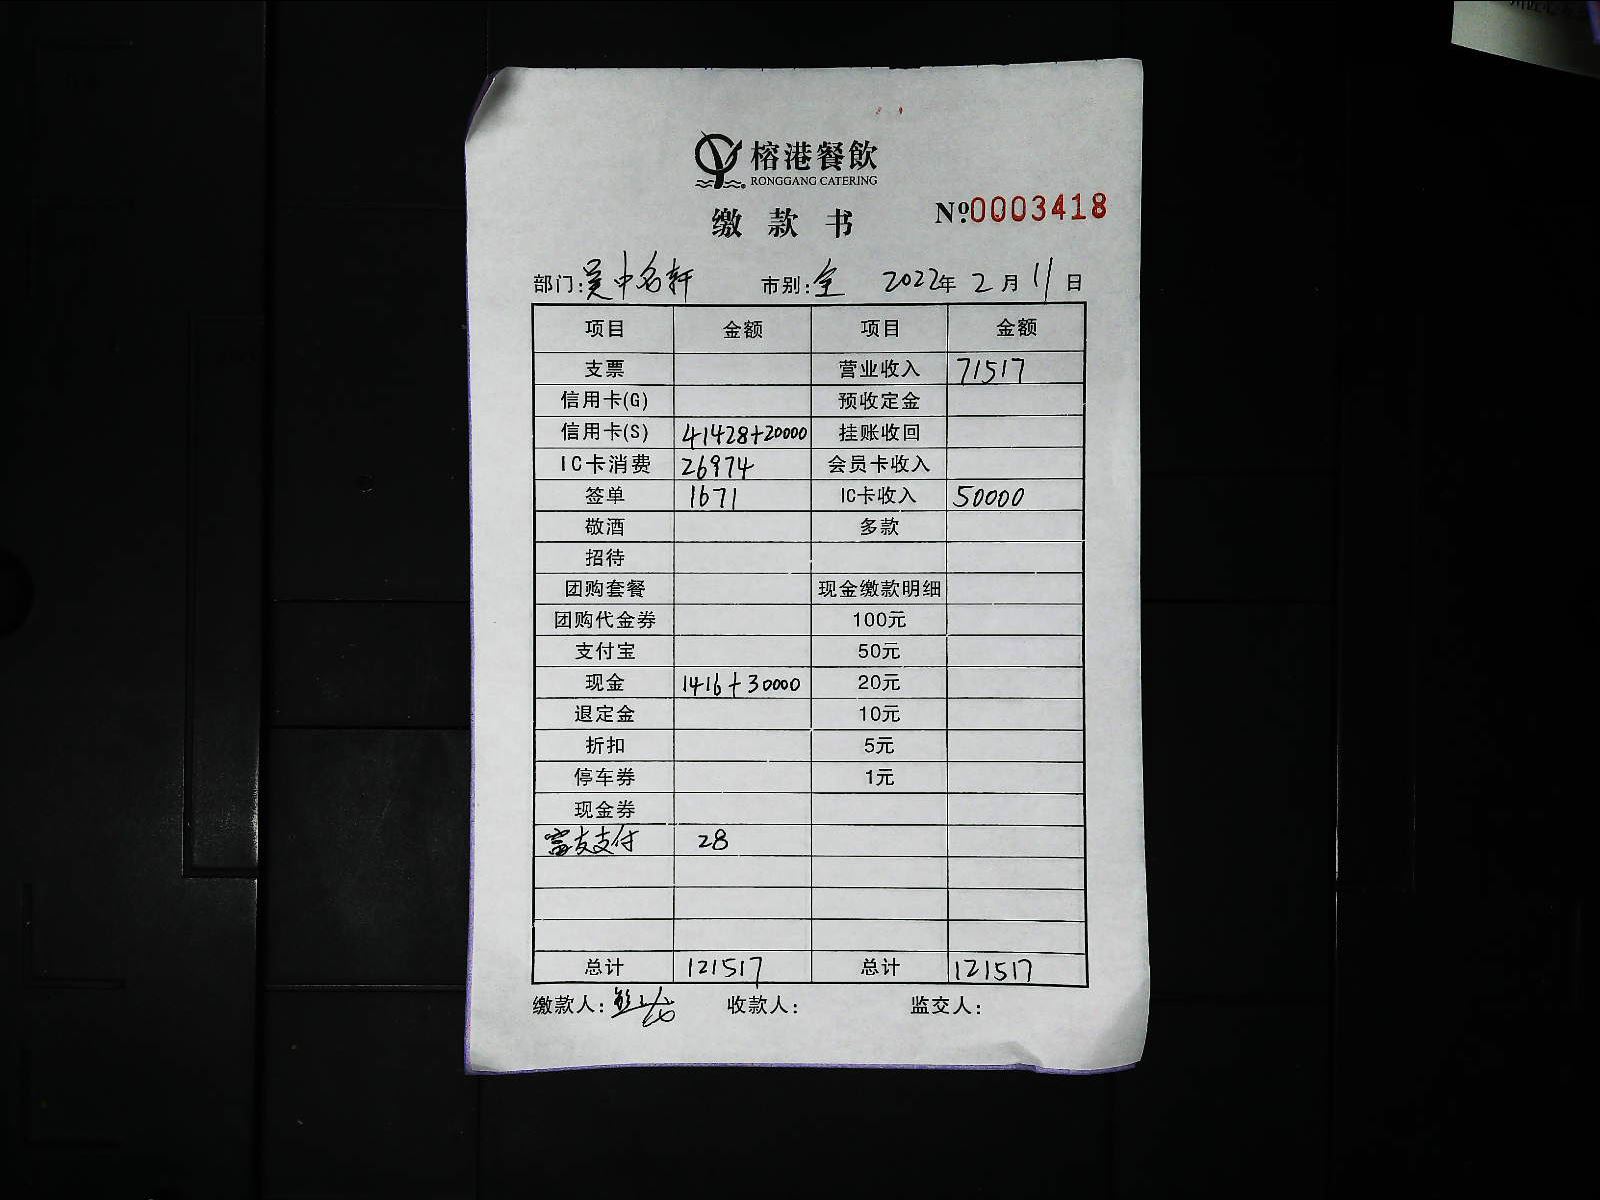 榕港餐飲
RONGGANG CATERING
缴款书
№0003418
部门:吴中名轩 市别:全 2022年2月11日
项目 金额 项目 金额
支票 营业收入 71517
信用卡(G) 预收定金
信用卡(S) 41428+20000 挂账收回
IC卡消费 26974 会员卡收入
签单 1671 IC卡收入 50000
敬酒 多款
招待
团购套餐 现金缴款明细
团购代金券 100元
支付宝 50元
现金 1416+30000 20元
退定金 10元
折扣 5元
停车券 1元
现金券
富友支付 28
总计 121517 总计 121517
缴款人: 收款人: 监交人: